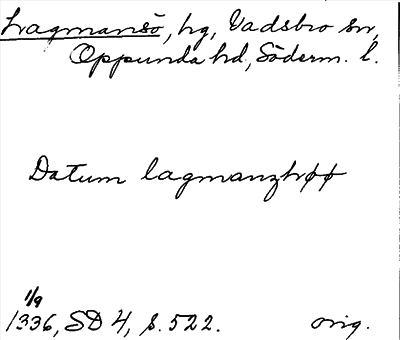 Lagmansö, hg, Vadsbro sn,
Oppunda hd, Söderm. l.
Datum lagmanzhøø
1/9
1336, SD 4, s. 522. orig.